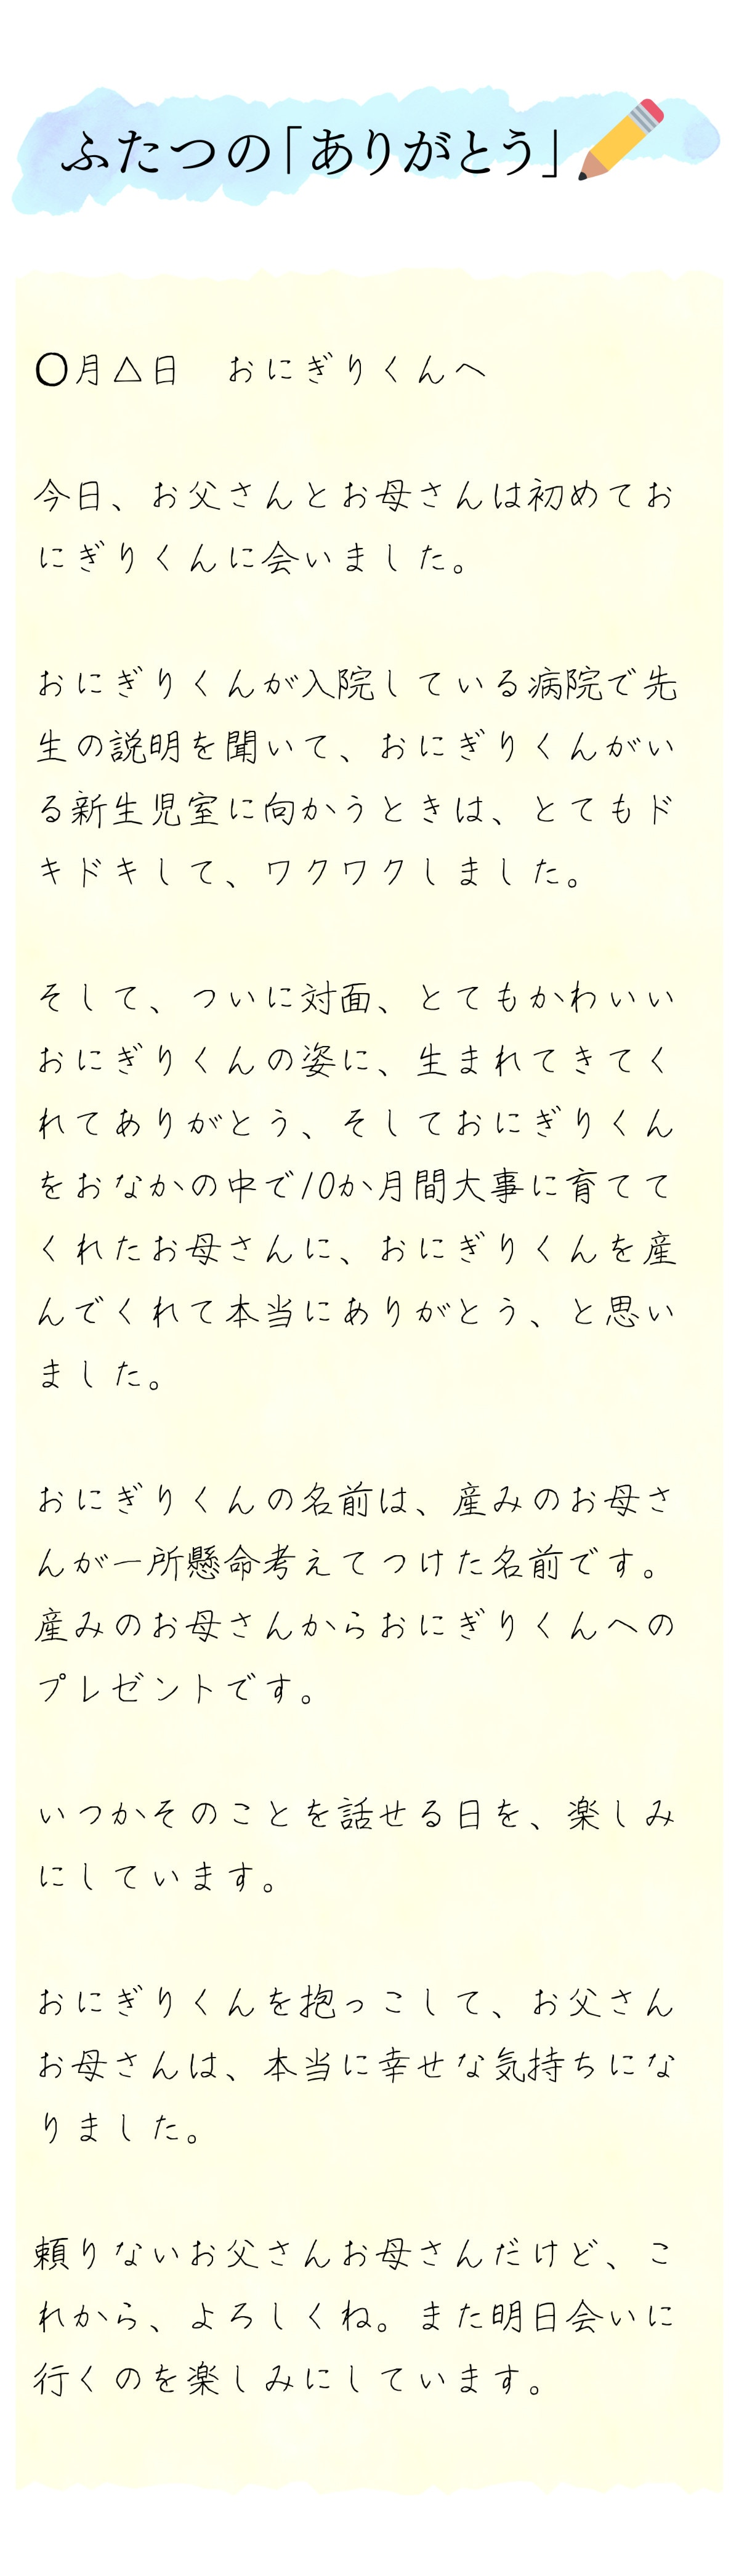 ふたつの「ありがとう」
〇月△日　おにぎりくんへ
今日、お父さんとお母さんは初めてお
にぎりくんに会いました。
おにぎりくんが入院している病院で先
生の説明を聞いて、おにぎりくんがい
る新生児室に向かうときは、とてもド
キドキして、ワクワクしました。
そして、ついに対面、とてもかわいい
おにぎりくんの姿に、生まれてきてく
れてありがとう、そしておにぎりくん
をおなかの中で10か月間大事に育てて
くれたお母さんに、おにぎりくんを産
んでくれて本当にありがとう、と思い
ました。
おにぎりくんの名前は、産みのお母さ
んが一所懸命考えてつけた名前です。
産みのお母さんからおにぎりくんへの
プレゼントです。
いつかそのことを話せる日を、楽しみ
にしています。
おにぎりくんを抱っこして、お父さん
お母さんは、本当に幸せな気持ちにな
りました。
頼りないお父さんお母さんだけど、こ
れから、よろしくね。また明日会いに
行くのを楽しみにしています。